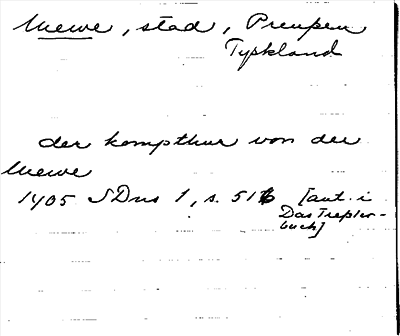 Mewe, stad, Preuβen
Tyskland
der kompthur von der
Mewe
1405 SDns 1, s. 516 [ant. i
Das Tresler-
buch]